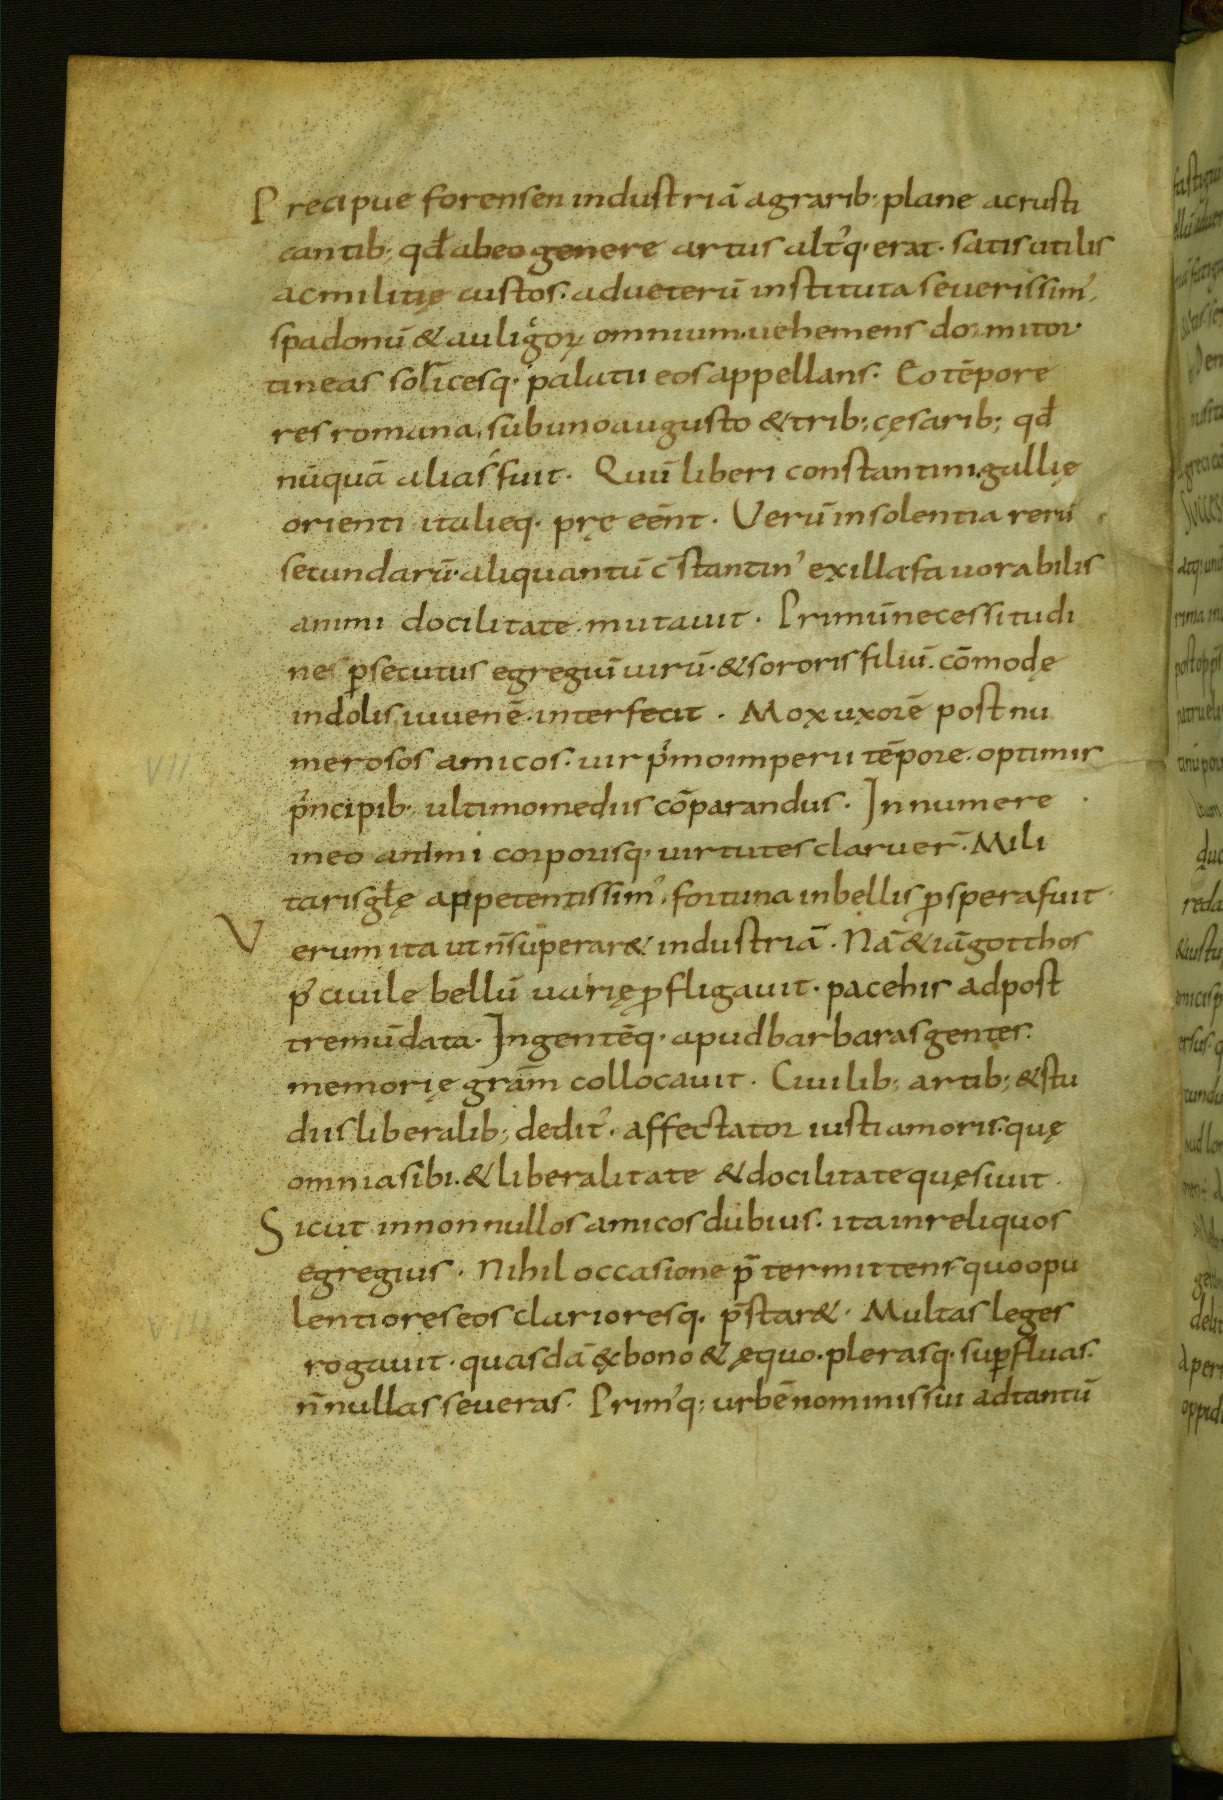 Precipue forensen industriā agrarib; plane ac rusti
cantib; qđ ab eo genere artus alt᾽q· erat· satis utilis
ac militię custos· ad ueterū instituta seuerissim᾽·
spadonū & auligͦoꝝ omnium· uehemens domitor·
tineas soricesq· palatii eos appellans· Eo tēpore
res romana· sub uno augusto & trib; cęsarib; qđ
nūquā alias fuit· Quū liberi constantini· gallię
orienti italieq· pręeēnt· Verū insolentia rerū
secundarū· aliquantū c̄stantin᾽ ex illa· fauorabilis
animi docilitate· mutauit· Primū necessitudi
nes ꝑsecutus egregiū uirū· & sororis filiū· cōmodę
indolis iuuenē· interfecit· Mox uxorē post nu
merosos amicos· uir pͥmo imperii tēpore· optimis
pͥncipib· ultimo mediis cōparandus· Innumere
in eo animi corporisq· uirtutes claruer̄· Mili
taris głę appetentissim᾽· fortuna in bellis ꝓspera fuit·
Verum ita ut ñ superar& industriā· Nā & iā gotthos
p᾽ ciuile bellū uarię ꝓfligauit· pace his ad post
tremū data· Ingentēq· apud barbaras gentes·
memorię grām collocauit· Ciuilib; artib; & stu
diis liberalib; dedit᾽· affectator iusti amoris· quę
omnia sibi· & liberalitate & docilitate quęsiuit·
Sicut in nonnullos amicos dubius· ita in reliquos
egregius· Nihil occasione p̄termittens quo opu
lentiores eos clarioresq· p̄star&· Multas leges
rogauit· quasdā ex bono & ęquo· plerasq· suꝑfluas·
ñnullas seueras· Prim᾽q; urbē nominis sui ad tantū
VII
VIII